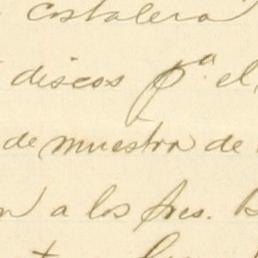 costalera
discos p.ª el
de muestra de
n a los fres. B